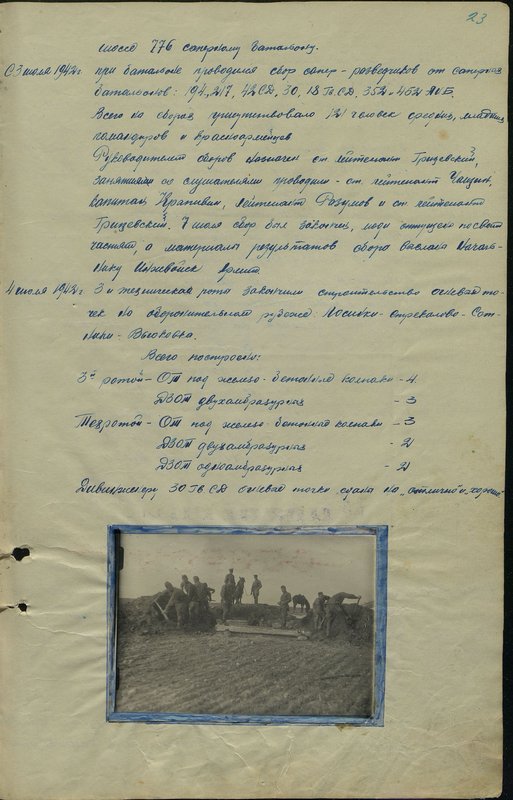 23
шоссе 776 саперному батальону.
С 3 июля 1942 г. при батальоне проводился сбор сапер-разведчиков от саперных
батальонов: 194, 217, 42 СД, 30, 18 Гв СД, 352 - 462 АИБ.
Всего на сборах присутствовало 121 человек средних, младших
командиров и красноармейцев.
Руководителем сборов назначен ст. лейтенант Грицевский,
занятиями со слушателями проводили - ст. лейтенант
капитан Крапивин, лейтенант Разумов и ст. лейтенант
Грицевский. 7 июля сбор был закончен, люди отпущены по своим
частям, а материалы результатов сбора высланы Началь-
нику Инжвойск Армии
4 июля 1942 г. 3 и техническая рота закончили строительство огневых то-
чек на оборонительном рубеже: Лосинки - Стрекалово - Сот-
ники - Вьюковка.
Всего построено:
3й ротой - ОТ под железо-бетонные колпаки - 4
ДЗОТ двухамбразурных - 3
Техротой - ОТ под железо-бетонные колпаки - 3
ДЗОТ двухамбразурных - 2
ДЗОТ одноамбразурных - 2
Дивинженеру 30 Гв СД огневые точки сданы на „отлично" и „хорошо"